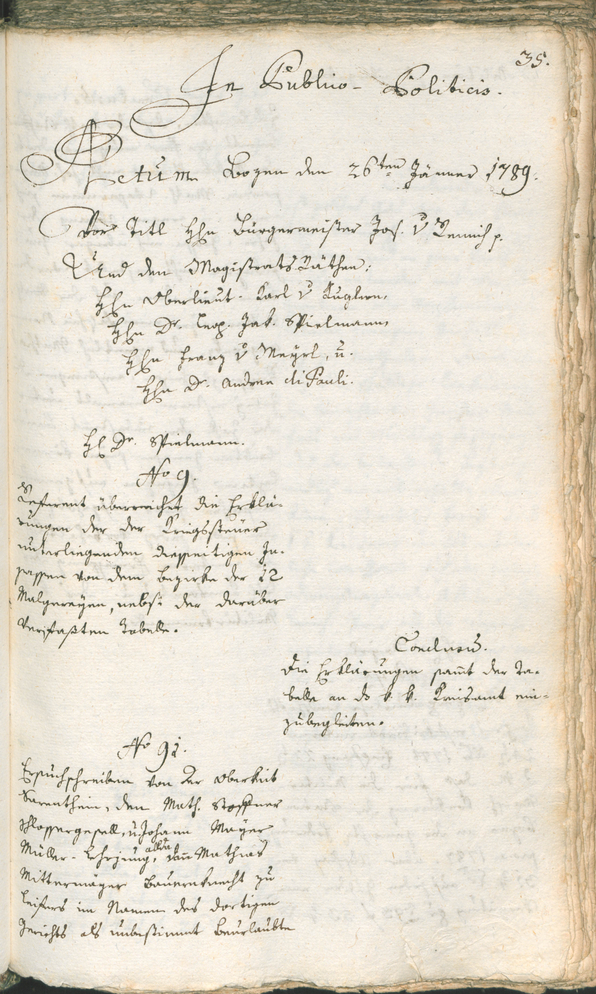 35.
In Publico-Politicis.
Actum Bozen den 26ten Jänner 1789.
Vor Titl Hhn Bürgermeister Jos. v
Und den Magistrats Räthen,
Hhn Oberlieut. Karl v
Hhn Dr. Leop. Jak. Spielmann,
Hhn Franz v Mayrl, u.
Hhn Dr. Andree di Pauli.
Hl Dr. Spielmann.
No 9.
Referent überreichet die Erklä-
rungen der der Kriegssteuer
unterliegenden diesseitigen In-
sassen von dem Bezirke der 12
Malgereyen, nebst der darüber
verfaßten Tabelle.
Conclusum.
Die Erklärungen sammt der Ta-
belle an das k. k. Kreisamt ein-
zubegleiten.
No 91.
Ersuchschreiben von der Obrkeit
Sarenthein, den Math. Stoffner
Schlossergesell, u Johann Mayr
Müller-Lehrjung allda, dann Mathias
Mittermayer Bauernknecht zu
Leifers im Namen des dortigen
Gerichts als unbestimmt Beurlaubte